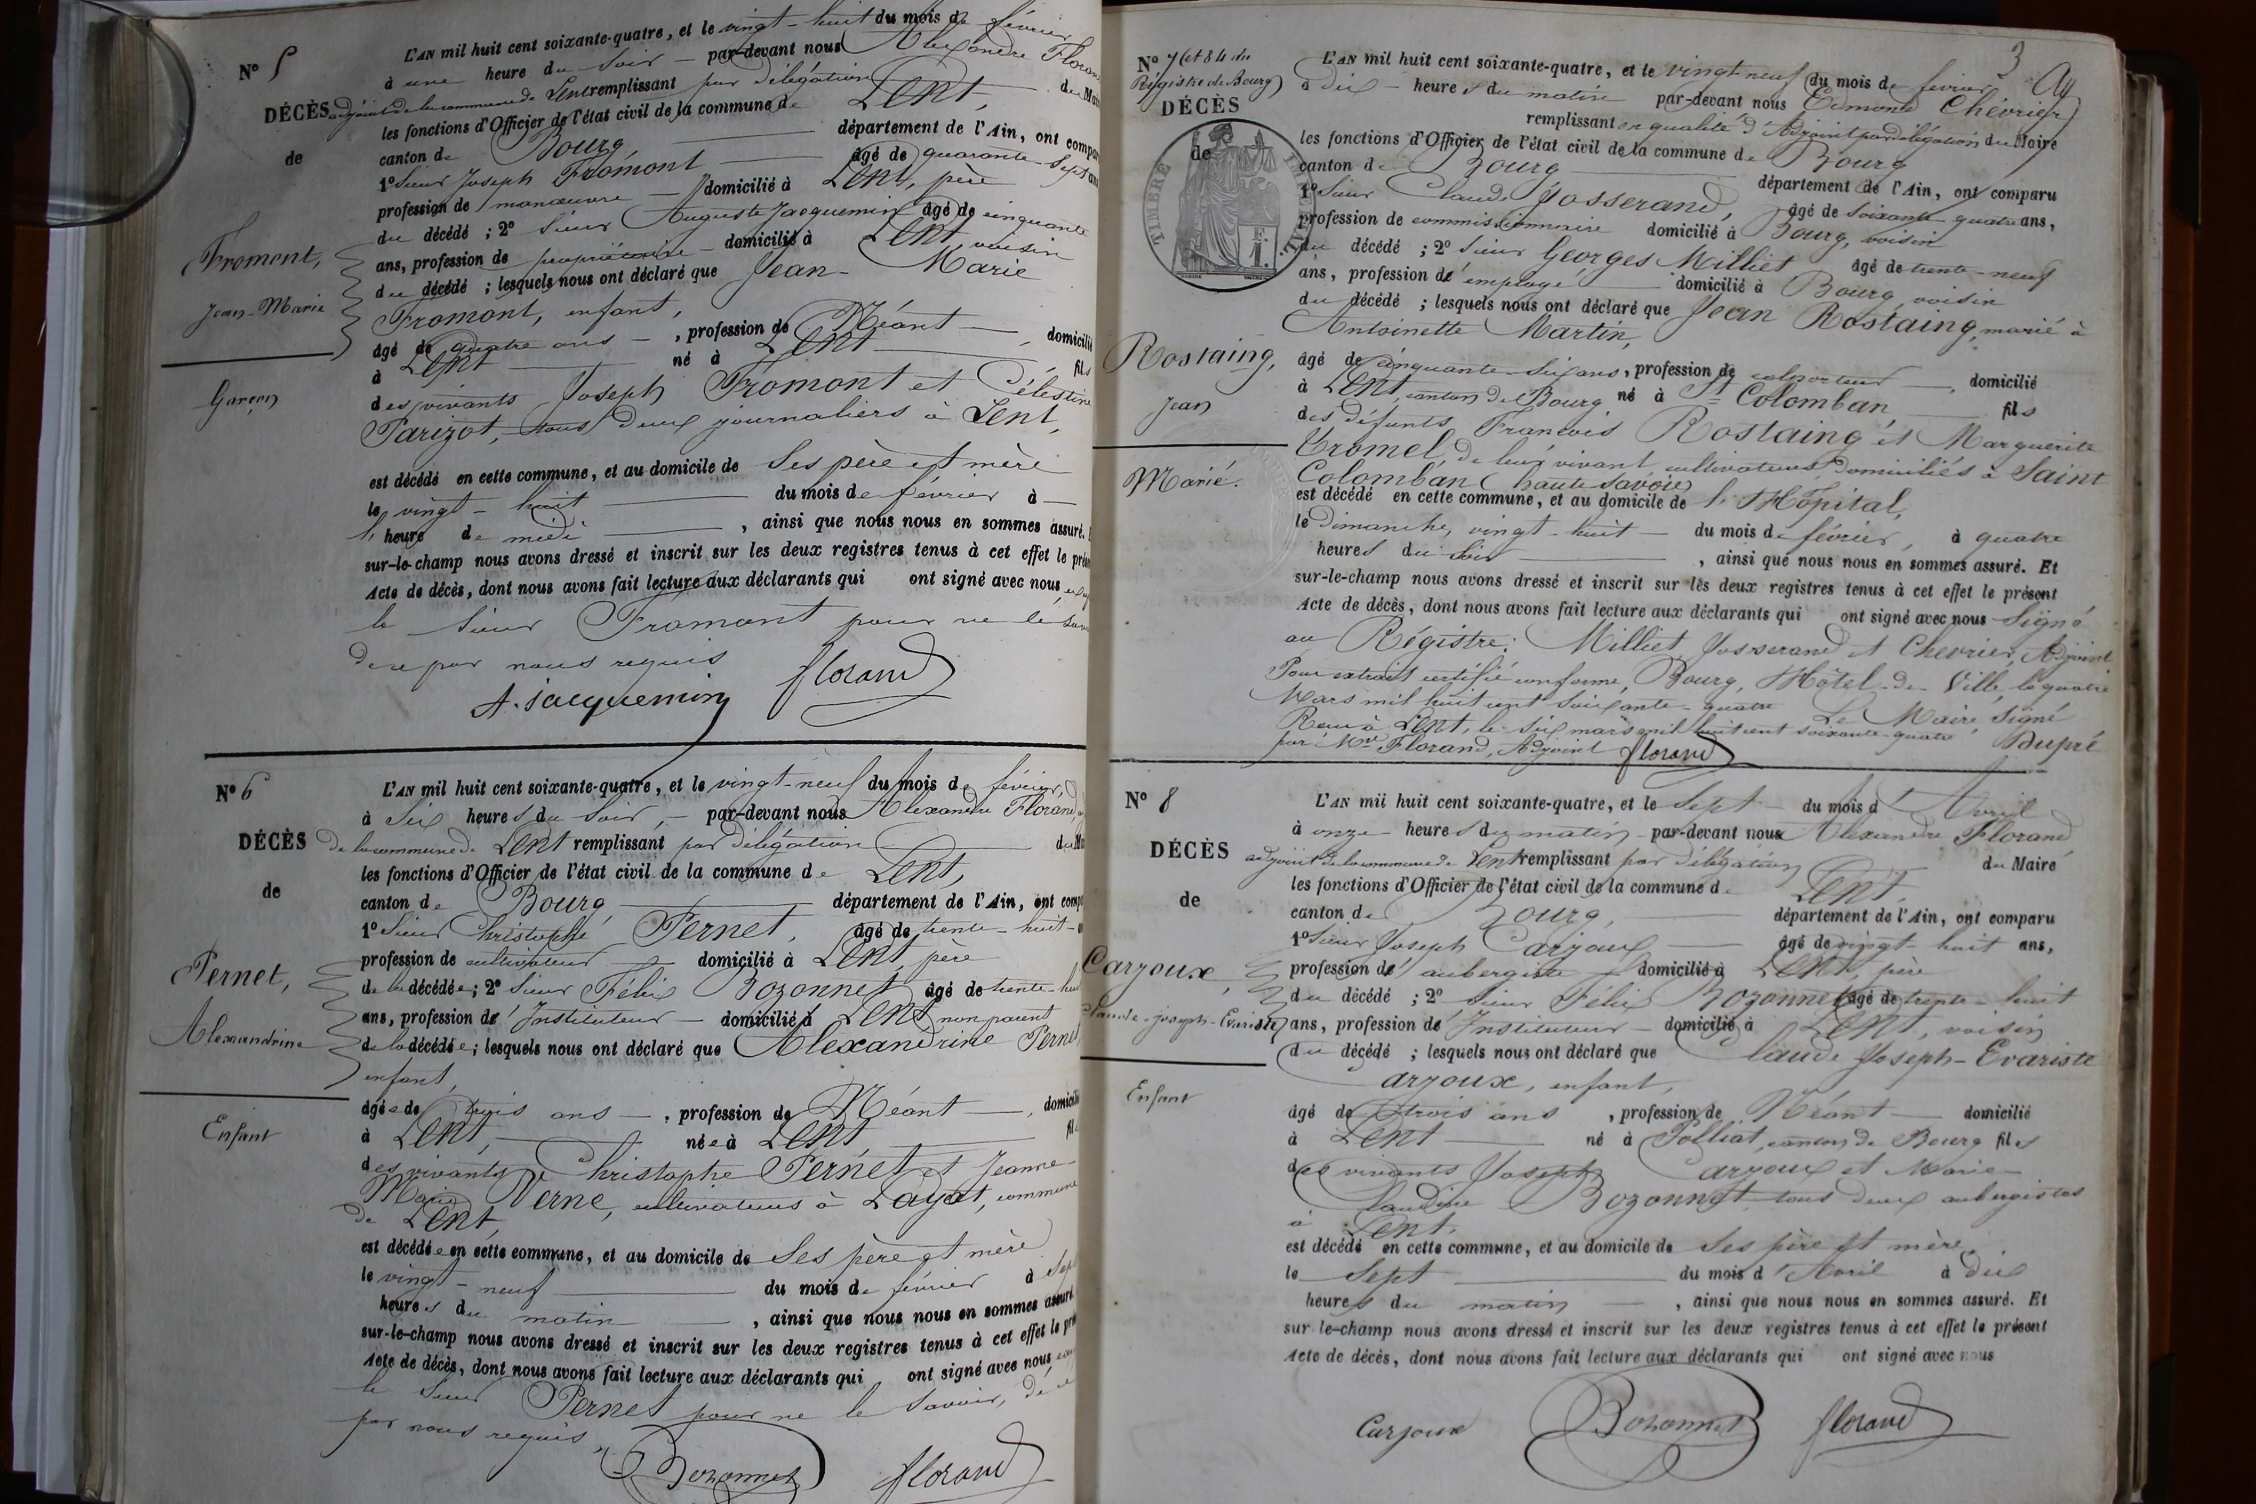 N° 5
DÉCÈS
de
Fromont,
Jean-Marie
Garçon
L'AN mil huit cent soixante-quatre, et le vingt-huit du mois de février
à une heure du soir par-devant nous Alexandre Floran
adjoint de la commune de Lent remplissant par délégation du Mai
les fonctions d'Officier de l'état civil de la commune de Lent,
canton de Bourg département de l'Ain, ont compar
1° Sieur Joseph Fromont âgé de quarante-sept ans
profession de manœuvre domicilié à Lent, père
du décédé ; 2° Sieur Auguste Jacquemin âgé de cinquante
ans, profession de propriétaire domicilié à Lent, voisin
du décédé ; lesquels nous ont déclaré que Jean-Marie
Fromont, enfant,
âgé de quatre ans, profession de Néant, domicilié
à Lent né à Lent fils
des vivants Joseph Fromont et Célestine
Parizot, tous deux journaliers à Lent,
est décédé en cette commune, et au domicile de Ses père et mère
le vingt-huit du mois de février à
l'heure de midi, ainsi que nous nous en sommes assuré.
sur-le-champ nous avons dressé et inscrit sur les deux registres tenus à cet effet le prés
Acte de décès, dont nous avons fait lecture aux déclarants qui ont signé avec nous
le Sieur Fromont pour ne le
de ce par nous requis
A. Jacquemin Florand
N° 6
DÉCÈS
de
Pernet,
Alexandrine
Enfant
L'AN mil huit cent soixante-quatre, et le vingt-neuf du mois de février,
à Six heures du Soir, par-devant nous Alexandre Florand,
de la commune de Lent remplissant par délégation du
les fonctions d'Officier de l'état civil de la commune de Lent,
canton de Bourg département de l'Ain, ont comp
1° Sieur Christophe Pernet, âgé de trente-huit
profession de cultivateur domicilié à Lent, père
de la décédée ; 2° Sieur Félix Bozonnet âgé de trente-hui
ans, profession d'Instituteur domicilié à Lent non parent
de la décédée ; lesquels nous ont déclaré que Alexandrine Pernet
enfant,
âgée de trois ans, profession de Néant, domicili
à Lent, née à Lent fil
des vivants Christophe Pernet et Jeanne-
Marie Verne, cultivateurs à Layat, commune
de Lent,
est décédée en cette commune, et au domicile de Ses père et mère
le vingt-neuf du mois de février à Sept
heures du matin, ainsi que nous nous en sommes assuré
sur-le-champ nous avons dressé et inscrit sur les deux registres tenus à cet effet le pré
Acte de décès, dont nous avons fait lecture aux déclarants qui ont signé avec nous
le Sieur Pernet pour ne le Savoir, de
par nous requis
Bozonnet Florand
3
N° 7 (et 84 du
Régistre de Bourg)
DÉCÈS
de
TIMBRE
1 F.
Rostaing,
Jean
Marié.
L'AN mil huit cent soixante-quatre, et le vingt-neuf du mois de février
à dix heures du matin par-devant nous Edmond Chevrier
remplissant en qualité d'Adjoint par délégation du Maire
les fonctions d'Officier de l'état civil de la commune de Bourg
canton de Bourg département de l'Ain, ont comparu
1° Sieur Claude Josserand, âgé de soixante-quatre ans,
profession de commissionnaire domicilié à Bourg, voisin
du décédé ; 2° Sieur Georges Milliet âgé de trente-neuf
ans, profession d'employé domicilié à Bourg voisin
du décédé ; lesquels nous ont déclaré que Jean Rostaing, marié à
Antoinette Martin,
âgé de cinquante-six ans, profession de colporteur, domicilié
à Lent, canton de Bourg né à St Colomban, fils
des défunts François Rostaing et Marguerite
Tromel, de leur vivant cultivateurs domiciliés à Saint
Colomban (haute Savoie)
est décédé en cette commune, et au domicile de l'Hôpital,
le dimanche, vingt-huit du mois de février, à quatre
heures du soir, ainsi que nous nous en sommes assuré. Et
sur-le-champ nous avons dressé et inscrit sur les deux registres tenus à cet effet le présent
Acte de décès, dont nous avons fait lecture aux déclarants qui ont signé avec nous Signé
au Régistre: Milliet, Josserand et Chevrier, Adjoint
Pour extrait certifié conforme, Bourg, Hôtel-de-Ville, le quatre
Mars mil huit cent soixante-quatre Le Maire, Signé
Reçu à Lent, le six mars mil huit cent soixante-quatre Dupré
par Mr Florand, Adjoint Florand
N° 8
DÉCÈS
de
Carjoux,
Claude-Joseph-Evariste
Enfant
L'AN mil huit cent soixante-quatre, et le Sept du mois d'Avril
à onze heures du matin par-devant nous Alexandre Florand
adjoint de la commune de Lent remplissant par délégation du Maire
les fonctions d'Officier de l'état civil de la commune de Lent,
canton de Bourg, département de l'Ain, ont comparu
1° Sieur Joseph Carjoux âgé de vingt-huit ans,
profession d'aubergiste domicilié à Lent, père
du décédé ; 2° Sieur Félix Bozonnet âgé de trente-huit
ans, profession d'Instituteur domicilié à Lent, voisin
du décédé ; lesquels nous ont déclaré que Claude Joseph-Evariste
Carjoux, enfant,
âgé de trois ans, profession de Néant domicilié
à Lent né à Polliat, canton de Bourg fils
des vivants Joseph Carjoux et Marie-
Claudine Bozonnet, tous deux aubergistes
à Lent,
est décédé en cette commune, et au domicile de Ses père et mère,
le Sept du mois d'Avril à dix
heures du matin, ainsi que nous nous en sommes assuré. Et
sur-le-champ nous avons dressé et inscrit sur les deux registres tenus à cet effet le présent
Acte de décès, dont nous avons fait lecture aux déclarants qui ont signé avec nous
Carjoux Bozonnet Florand